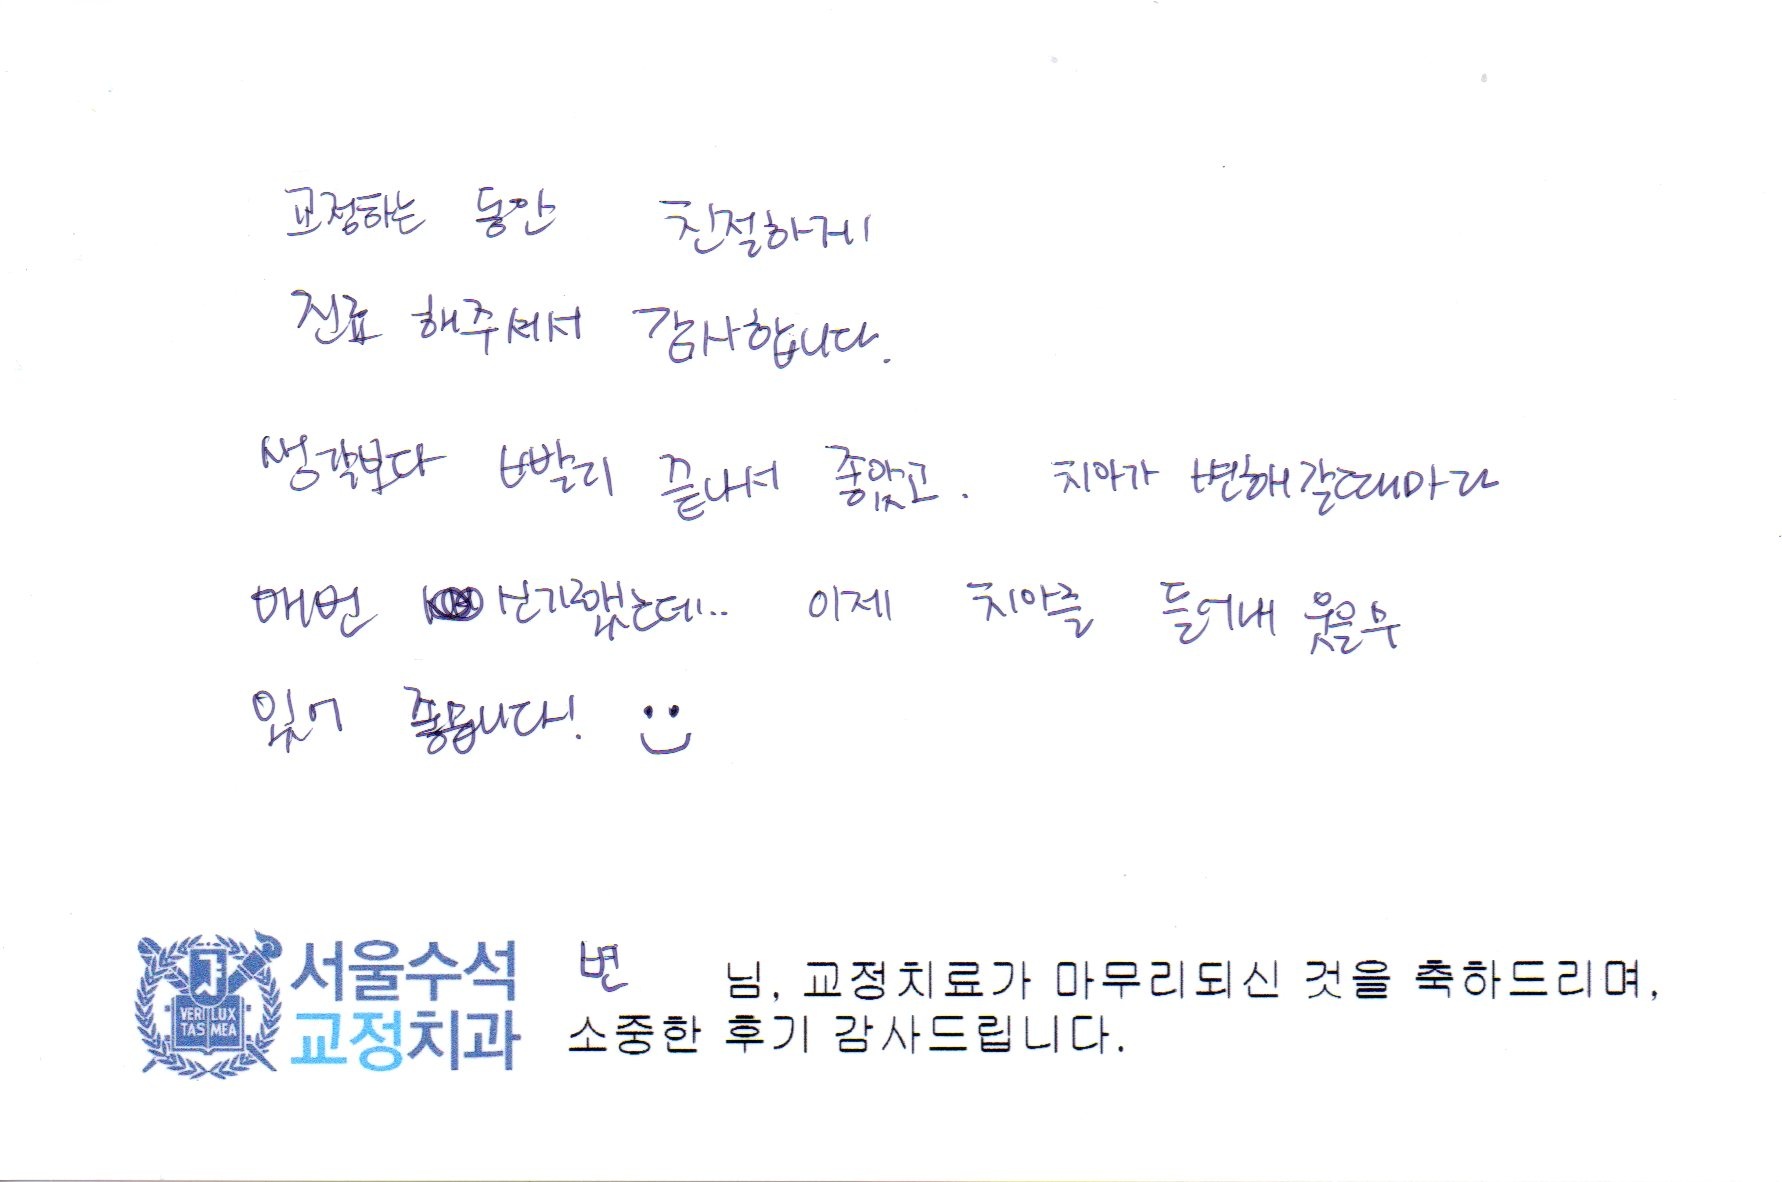 교정하는 동안 친절하게
진료 해주셔서 감사합니다.
생각보다 빨리 끝나서 좋았고. 치아가 변해갈때마다
매번 신기했는데.. 이제 치아를 들어내 웃을수
있어 좋습니다!
서울수석
교정치과
VERI LUX
TAS MEA
변 님, 교정치료가 마무리되신 것을 축하드리며,
소중한 후기 감사드립니다.